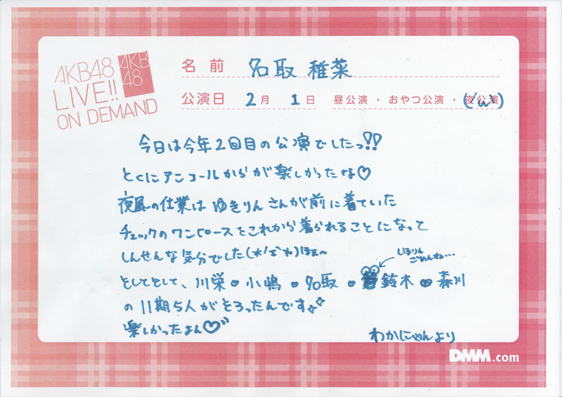 AKB48
LIVE!!
ON DEMAND
AKB
48
名前 名取 稚菜
公演日 2月 1日 昼公演・おやつ公演・夜公演 ('ω')
今日は今年2回目の公演でしたっ!!
とくにアンコールからが楽しかったな♡
夜風の仕業はゆきりんさんが前に着ていた
チェックのワンピースをこれから着られることになって
しんせんな気分でした(*'▽'*)ほぇ〜
しほりん
ごめんね…
としてとして、川栄♡小嶋♡名取♡鈴木♡森川
の11期5人がそろったんです
楽しかったよん♡
わかにゃんより
DMM.com